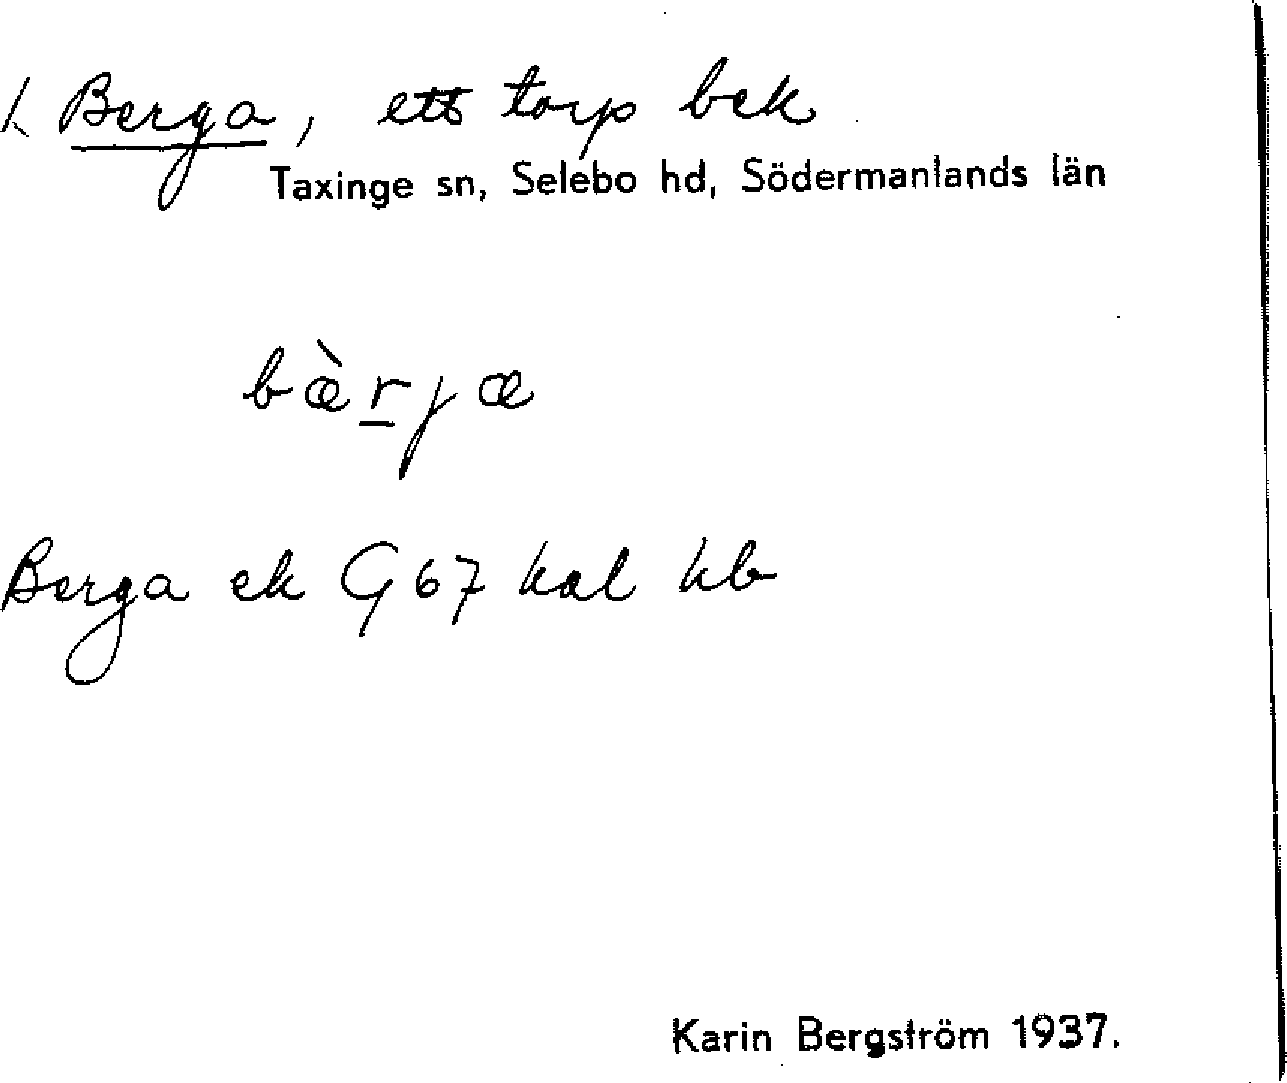 L Berga, ett torp bek
Taxinge sn, Selebo hd, Södermanlands län
bæ̀r̲jæ
Berga ek G67 kal hb
Karin Bergström 1937.